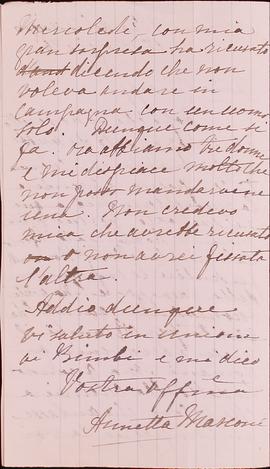 Mercoledì, con mia
gran sorpresa ha ricusato
dicendo che non
voleva andare in
campagna con un uomo
solo. Dunque come si
fa. ora abbiamo tre donne
e mi dispiace molto che
non posso mandarvene
una. Non credevo
mica che avrebbe ricusato
o non avrei fissata
l'altra.
Addio dunque
vi saluto in unione
ai Bimbi e mi dico
Vostra Aff.ma
Annetta Marconi